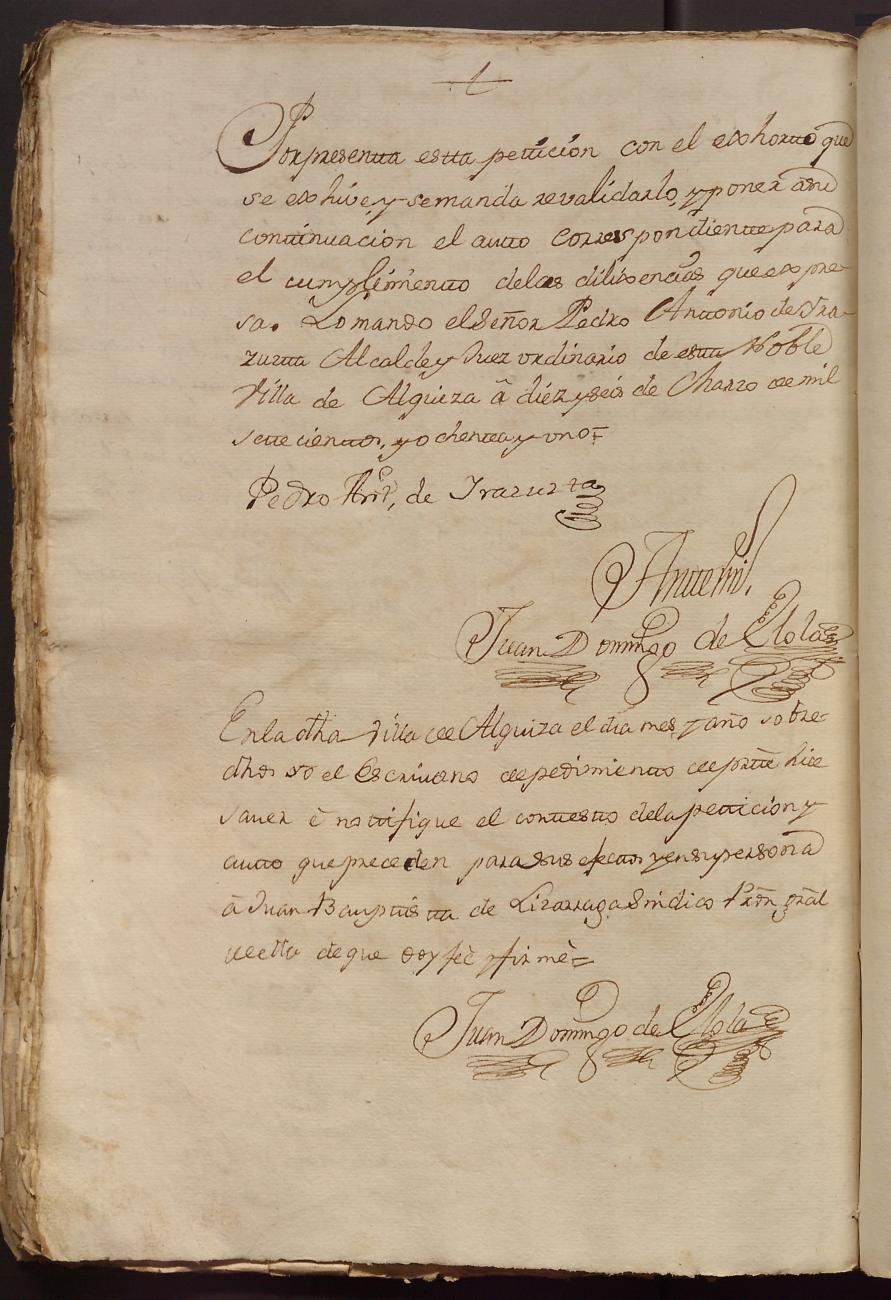 Por presentta estta petticion con el exhortto que
se exhive y se manda revalidarlo, y poner a su
conttinuacion el autto correspondiente para
el cumplimientto de las dilixencias que expre-
sa. Lo mando el Señor Pedro Anttonio de Yra-
zuzta Alcalde y Juez ordinario de estta Noble
Villa de Alquiza â diez y seis de Marzo de mil
settecienttos, y ochenta y uno=
Pedro Antº, de Irazuzta
Antte mi,
Juan Domingo de Elola
En la dha Villa de Alquiza el dia mes y año sobre-
dhos yo el Escrivano de pedimientto de partte hice
saver è nottifique el conttestto de la petticion y
autto que preceden para sus efecttos y en su persona
â Juan Bauptistta de Lizarraga Sindico Prõr grãl
de ella de que doy feè y firmè=
Juan Domingo de Elola